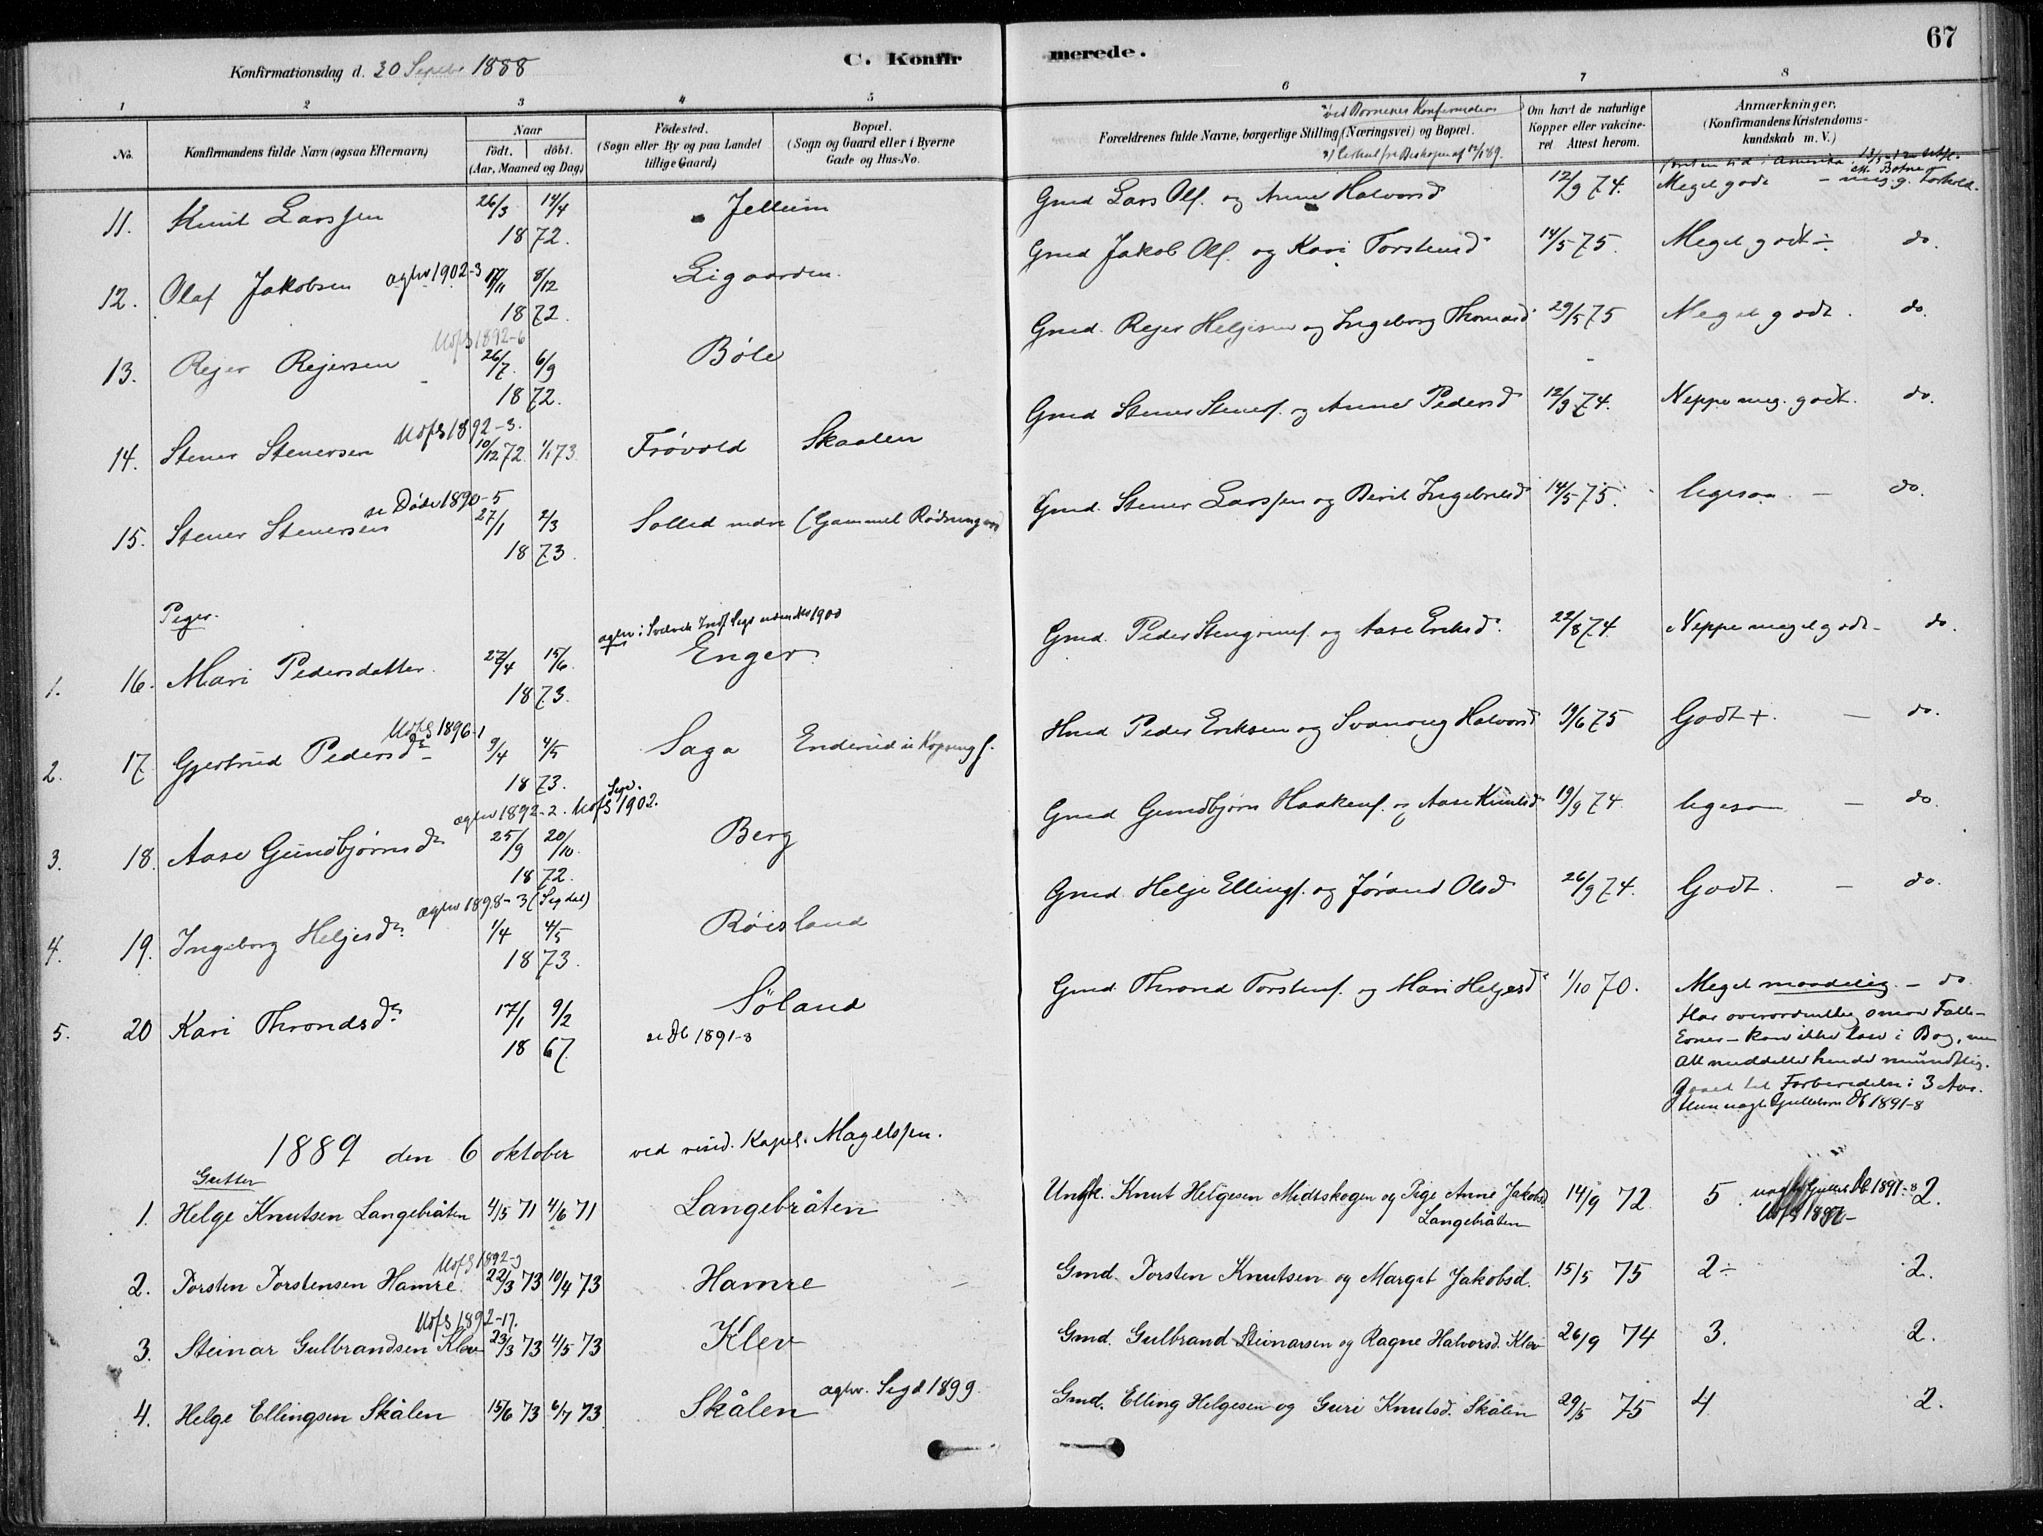 67
Konfirmationsdag d. 30 Septebr 1888
C. Konfirmerede.
1 2 3 4 5 6 7 8
No.
Konfirmandens fulde Navn (ogsaa Efternavn)
Naar
født. døbt.
(Aar, Maaned og Dag)
Fødested.
(Sogn eller By og paa Landet
tillige Gaard)
Bopæl.
(Sogn og Gaard eller i Byerne
Gade og Hus-No.
ved Børnenes Konfirmation
Forældrenes fulde Navne, borgerlige Stilling (Næringsvei) og Bopæl.
Om havt de naturlige
Kopper eller vakcine-
ret Attest herom.
Anmærkninger.
(Konfirmandens Kristendoms-
kundskab m. V.)
11. Knut Larssen 26/3 14/4 1872. Jelleim Gmd Lars Ols. og Anne Halvorsd 12/9 74. Meget godt - meg. g. Forhold.
12. Olaf Jakobsen ægtev 1902-3 17/11 8/12 1872. Ligaarden. Gmd Jakob Ols. og Kari Torstensd 14/5 75. Meget godt ÷ do.
13. Rejer Rejersen Udfl 1892-6 26/7 6/9 1872. Bøle Gmd. Rejer Helgesen og Ingeborg Thomasd 29/5 75 Meget godt. do.
14. Stener Stenersen Udfl 1892-3. 10/12 72 1/1 73. Frøvold Skaalen Gmd Stener Steners. og Anne Pedersd 12/9 74. Neppe meg. godt. do.
15. Stener Stenersen se Døde 1890-5 27/1 2/3 1873. Solled ndre (Gammel Rødningen) Gmd. Stener Larssen og Berit Ingebretsd 14/5 75. ligesaa - do.
Piger.
1. 16. Mari Pedersdatter. 27/4 15/6 1873. Enger. Gmd. Peder Stengrims. og Aase Eriksd. 22/8 74 Neppe meget godt - do.
2. 17 Gjertrud Pedersdr Udfl 1896-1 9/4 4/5 1873. Saga Enderud i Kopseng f. Hmd Peder Eriksen og Svanaug Halvorsd 19/6 75 Godt +. - do.
3. 18. Aase Gundbjørnsdr ægtev 1892-2. Udfl Sigd. 1902. 25/9 20/10 1872. Berg Gmd Gundbjørn Haakens. og Aase Knutsd 19/9 74. ligesaa - do.
4. 19. Ingeborg Helgesdr. ægtev 1898-3 (Sigdal) 1/4 4/5 1873. Røisland Gmd. Helge Ellings. og Jørand Olsd 26/9 74. Godt. - do.
5. 20 Kari Throndsdr. 17/1 9/2 1867 Søland se Db 1891-8 Gmd. Thrond Torstens. og Mari Helgesd 1/10 70. Meget maadelig. - do.
Har overordentlig smaa Fatte-
Evner - kan ikke læse i Bog, men
Alt meddelt hende mundtlig.
Gaaet til Forberedelse i 3 Aar.
1889 den 6 oktober ved resid. Kapel. Magelssen.
Gutter
1. Helge Knutsen Langebråten 4/5 71 4/6 71 Langebråten Ungk. Knut Helgesen Midtskogen og Pige Anne Jakobsd. Langebråten 14/9 72. 5. 2.
2. Torsten Torstensen Hamre. Udfl 1892-9 22/3 73 10/4 73 Hamre Gmd. Torsten Knutsen og Margit Jakobsd. 15/5 75 2÷ 2.
3. Steinar Gulbrandsen Klev Udfl 1892-17. 23/3 73 4/5 73 Klev Gmd. Gulbrand Steinarsen og Ragne Halvorsd. Klev 26/9 74 3. 2.
4. Helge Ellingsen Skålen 15/6 73 6/7 73 Skålen ægtev. Sigd 1899. Gmd. Elling Helgesen og Guri Knutsd. Skålen 29/5 75 4 2.